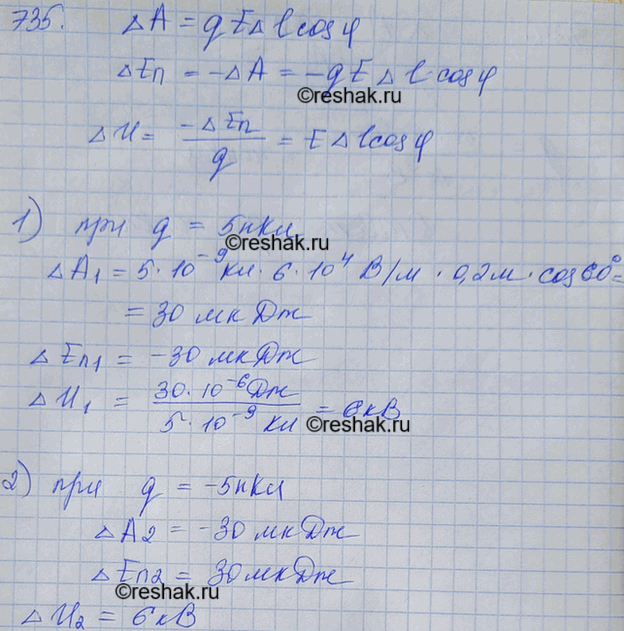 735. ΔA = qEΔl cosφ
ΔEп = -ΔA = -qEΔl·cosφ
©reshak.ru
ΔU = -ΔEп/q = EΔl cosφ
1) при q = 5нКл
©reshak.ru
ΔA₁ = 5·10⁻⁹Кл·6·10⁴ В/м·0,2м·cos60°=
= 30 мкДж
ΔEп₁ = -30 мкДж
ΔU₁ = 30·10⁻⁶Дж/5·10⁻⁹ Кл = 6кВ
©reshak.ru
2) при q = -5нКл
ΔA₂ = -30 мкДж
ΔEп₂ = 30 мкДж
©reshak.ru
ΔU₂ = 6кВ